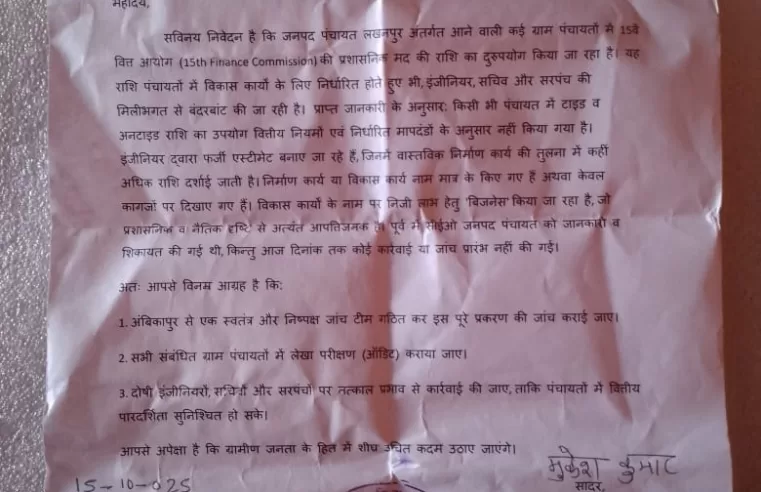 महोदय,
सविनय निवेदन है कि जनपद पंचायत लखनपुर अंतर्गत आने वाली कई ग्राम पंचायतों में 15वें
वित्त आयोग (15th Finance Commission) की प्रशासनिक मद की राशि का दुरुपयोग किया जा रहा है। यह
राशि पंचायतों में विकास कार्यों के लिए निर्धारित होते हुए भी, इंजीनियर, सचिव और सरपंच की
मिलीभगत से बंदरबांट की जा रही है। प्राप्त जानकारी के अनुसार: किसी भी पंचायत में टाइड व
अनटाइड राशि का उपयोग वित्तीय नियमों एवं निर्धारित मापदंडों के अनुसार नहीं किया गया है।
इंजीनियर द्वारा फर्जी एस्टीमेट बनाए जा रहे हैं, जिनमें वास्तविक निर्माण कार्य की तुलना में कहीं
अधिक राशि दर्शाई जाती है। निर्माण कार्य या विकास कार्य नाम मात्र के किए गए हैं अथवा केवल
कागजों पर दिखाए गए हैं। विकास कार्यों के नाम पर निजी लाभ हेतु 'बिजनेस' किया जा रहा है, जो
प्रशासनिक व नैतिक दृष्टि से अत्यंत आपत्तिजनक है। पूर्व में सीईओ जनपद पंचायत को जानकारी व
शिकायत की गई थी, किन्तु आज दिनांक तक कोई कार्रवाई या जांच प्रारंभ नहीं की गई।
अतः आपसे विनम्र आग्रह है कि:
1. अंबिकापुर से एक स्वतंत्र और निष्पक्ष जांच टीम गठित कर इस पूरे प्रकरण की जांच कराई जाए।
2. सभी संबंधित ग्राम पंचायतों में लेखा परीक्षण (ऑडिट) कराया जाए।
3. दोषी इंजीनियरों, सचिवों और सरपंचों पर तत्काल प्रभाव से कार्रवाई की जाए, ताकि पंचायतों में वित्तीय
पारदर्शिता सुनिश्चित हो सके।
आपसे अपेक्षा है कि ग्रामीण जनता के हित में शीघ्र उचित कदम उठाए जाएंगे।
मुकेश कुमार
15-10-025
सादर,